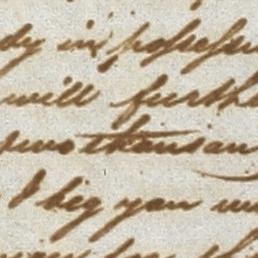 dy in possessi
will furth
two thousan
I beg you